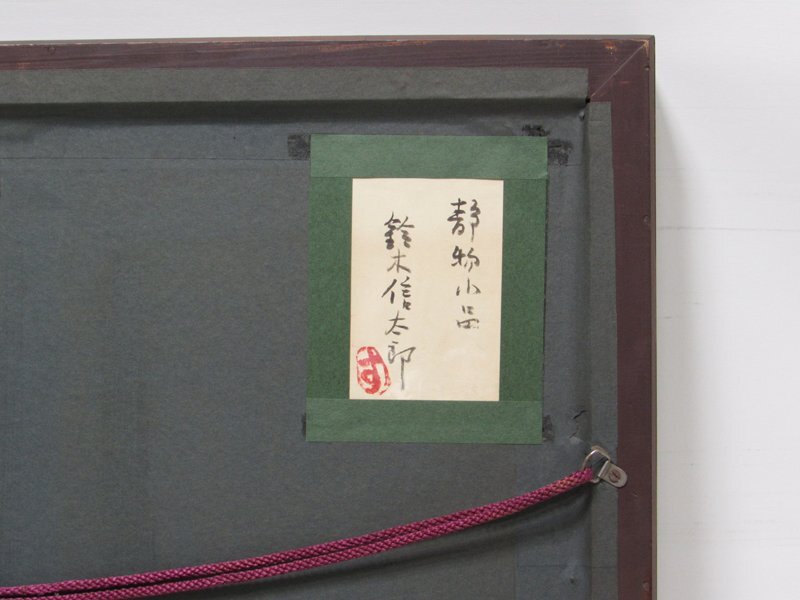 静物小品
鈴木信太郎
す